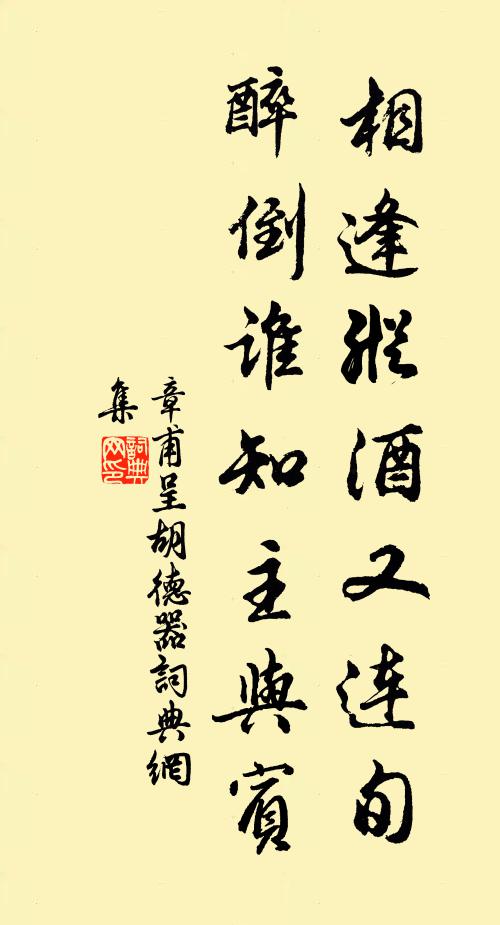 相逢縱酒又連旬
醉倒誰知主與賓
章甫呈胡德器詞典網
集
詞典網印